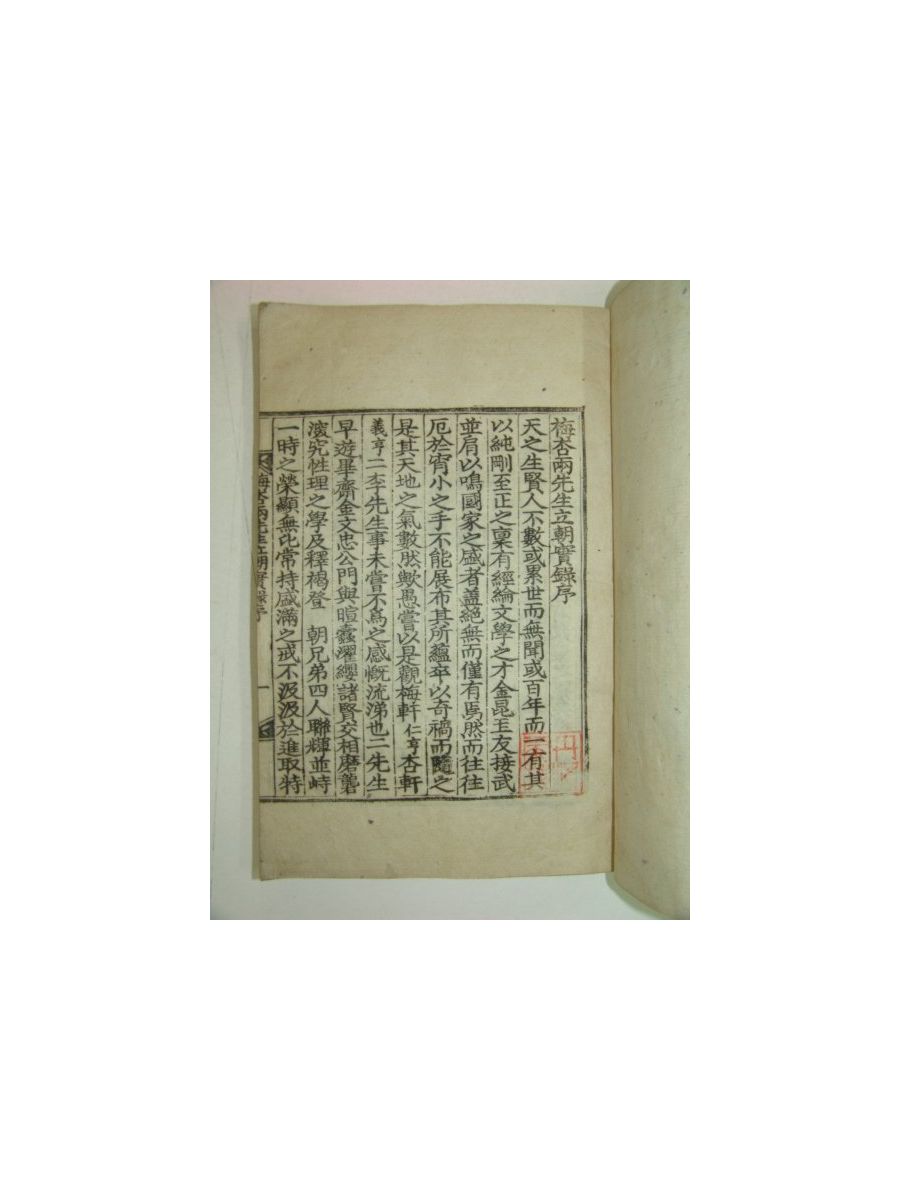 梅杏兩先生立朝實錄序
天之生賢人不數或累世而無聞或百年而一有其
以純剛至正之稟有經綸文學之才金昆玉友接武
並肩以鳴國家之盛者蓋絕無而僅有焉然而往往
厄於宵小之手不能展布其所蘊卒以奇禍而隨之
是其天地之氣數然歟愚嘗以是觀梅軒仁亨杏軒
義亨二李先生事未嘗不爲之感慨流涕也二先生
早遊畢齋金文忠公門與暄蠹濯纓諸賢交相磨礱
深究性理之學及釋褐登 朝兄弟四人聯輝並峙
一時之榮顯無比常持盛滿之戒不汲汲於進取特
梅杏兩先生立朝實錄序 一